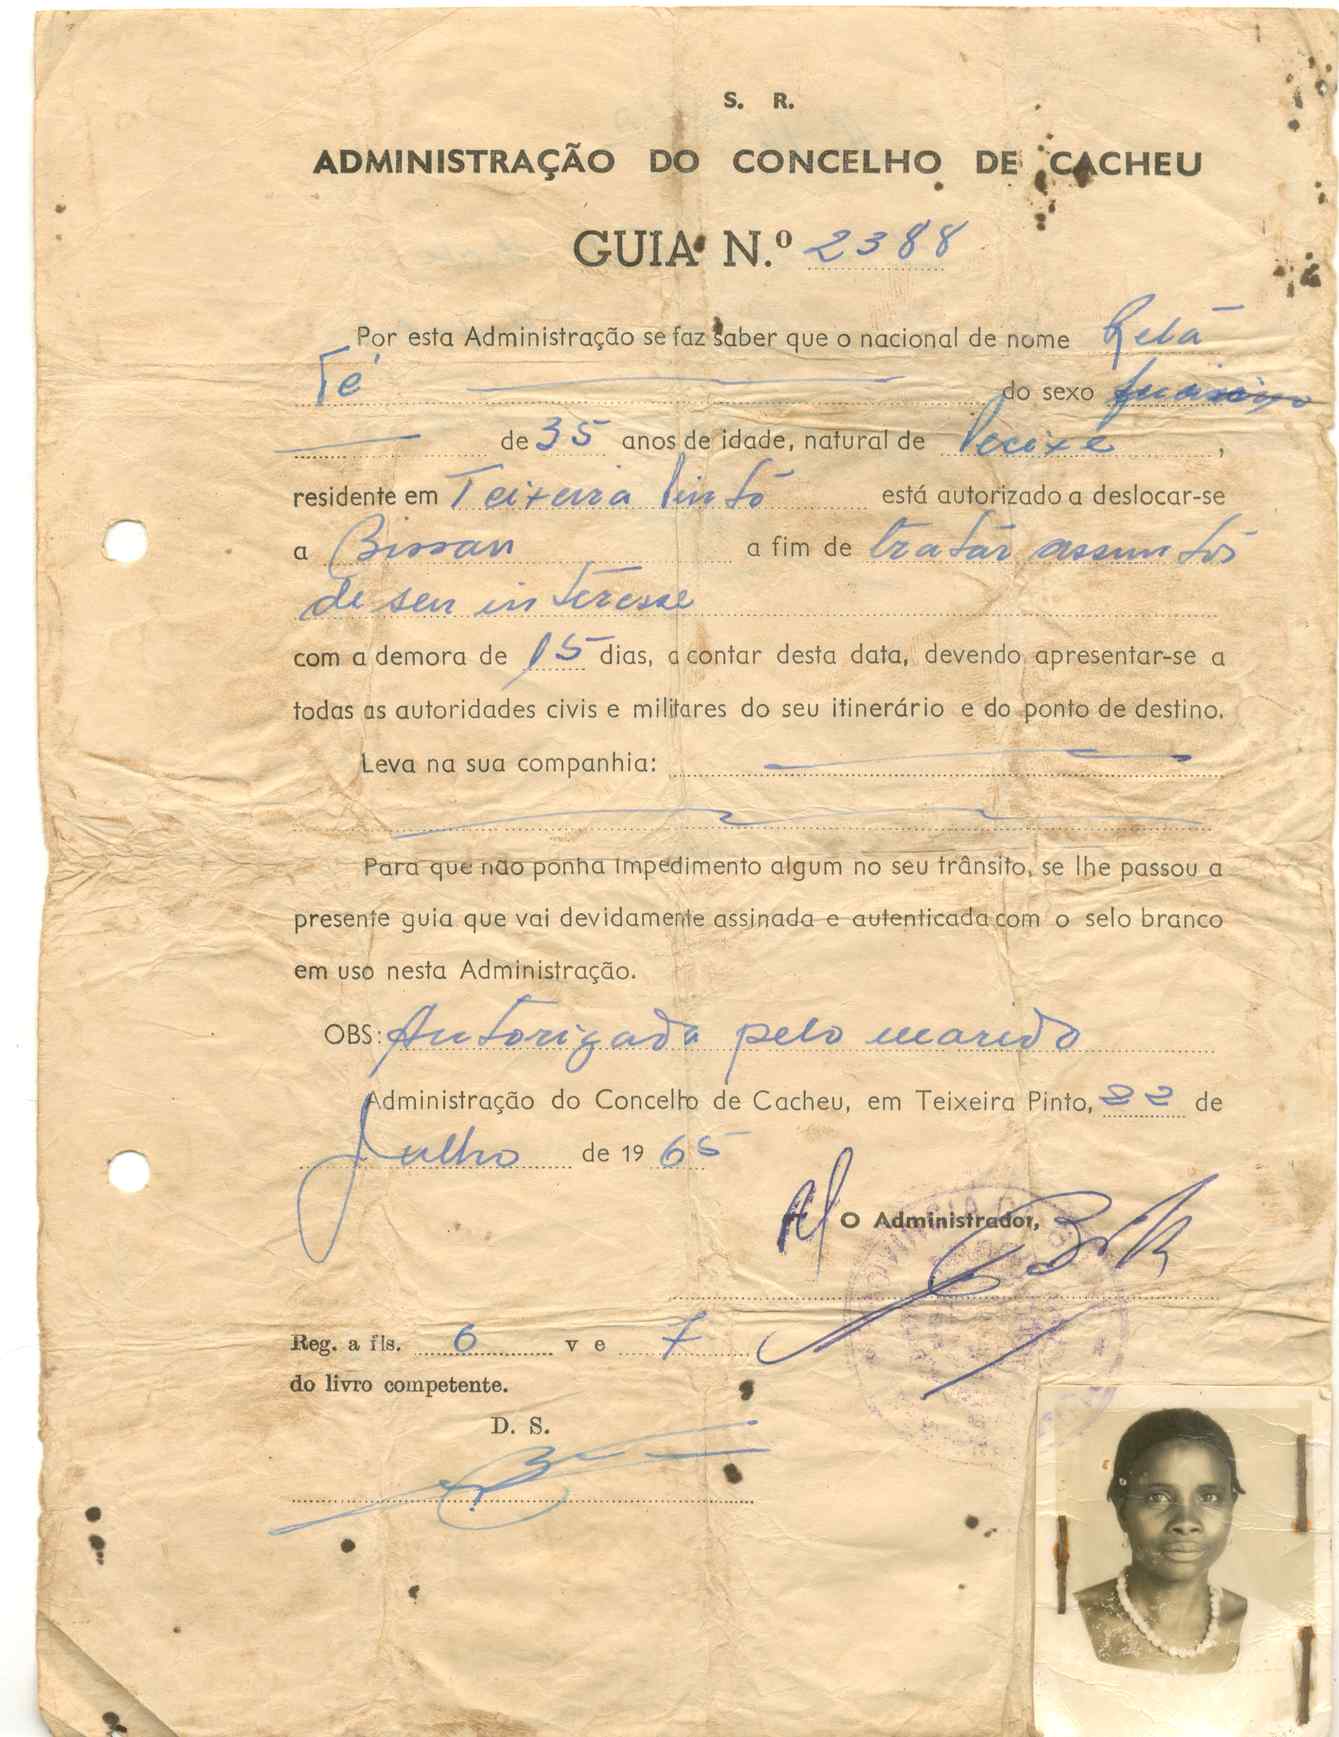 S. R.
ADMINISTRAÇÃO DO CONCELHO DE CACHEU
GUIA N.º 2388
Por esta Administração se faz saber que o nacional de nome
Té do sexo
de 35 anos de idade, natural de Pecixe,
residente em Teixeira Pinto está autorizado a deslocar-se
a Bissau a fim de tratar assuntos
de seu interesse
com a demora de 15 dias, a contar desta data, devendo apresentar-se a
todas as autoridades civis e militares do seu itinerário e do ponto de destino.
Leva na sua companhia:
Para que não ponha impedimento algum no seu trânsito, se lhe passou a
presente guia que vai devidamente assinada e autenticada com o selo branco
em uso nesta Administração.
OBS: Autorizada pelo marido
Administração do Concelho de Cacheu, em Teixeira Pinto, 22 de
Julho de 1965
O Administrador,
Reg. a fls. 6 v e 7
do livro competente.
D. S.